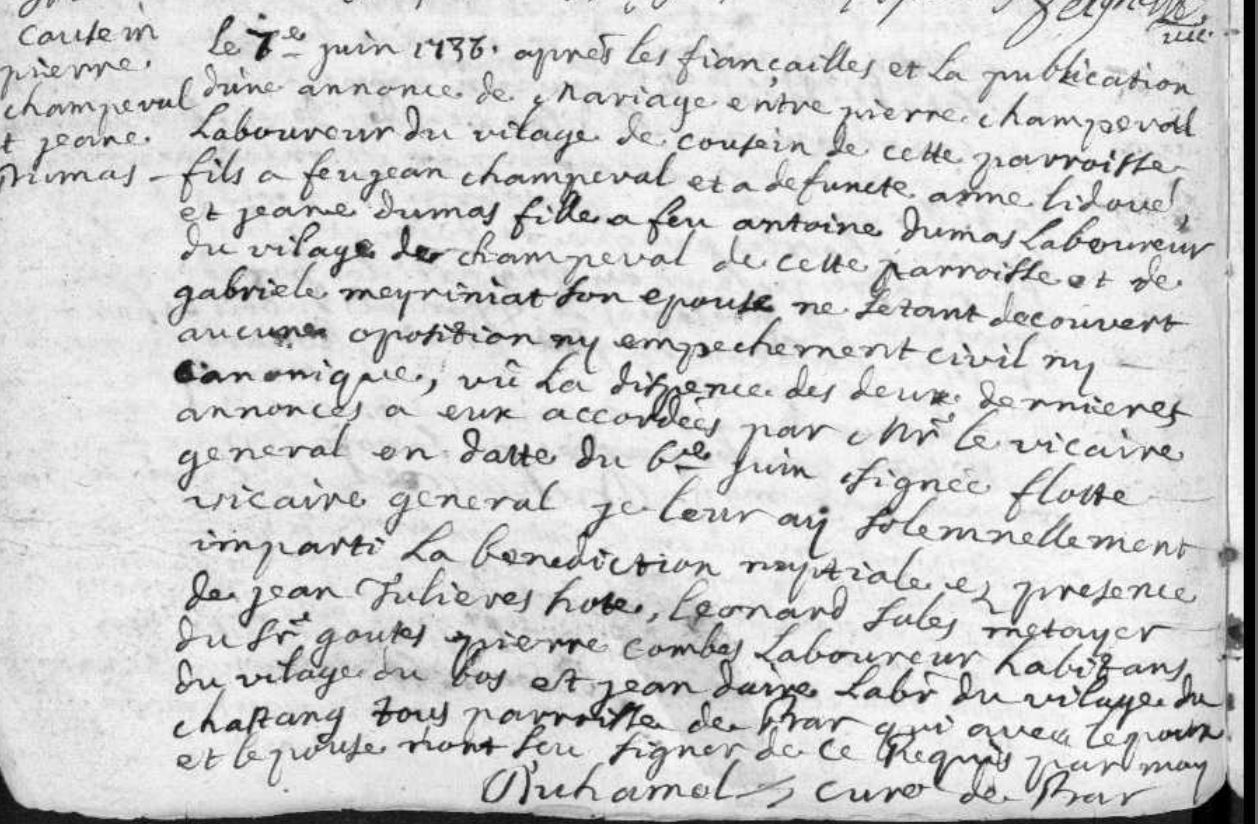 coutein
pierre
champeval
et jeane
Dumas -
le 7e juin 1736. aprés les fiançailles et La publication
dune annonce de Mariage entre pierre champeval
Laboureur du vilage de coutein de cette parroisse
fils a feu jean champeval et a defuncte anne lidove,
et jeane dumas fille a feu antoine dumas Laboureur
du vilage de champeval de cette parroisse et de
gabriele meyriniat son epouse ne setant decouvert
aucune oposition ny empechement civil ny
Canonique, vû La dispence des deux dernieres
annonces a eux accordées par Mr le vicaire
general en datte du 6me juin signée flotte
vicaire general je leur ay solemnellement
imparti La benediction nuptiale ez presence
de jean Iulieres hote, leonard sules metayer
du Sr goutes pierre combes Laboureur habitans
du vilage du bos et jean daire Labr du vilage du
chastang tous parroisse de qui avec lepoux
et lepouse n'ont seu signer de ce Requis par moy
Duhamel curé de